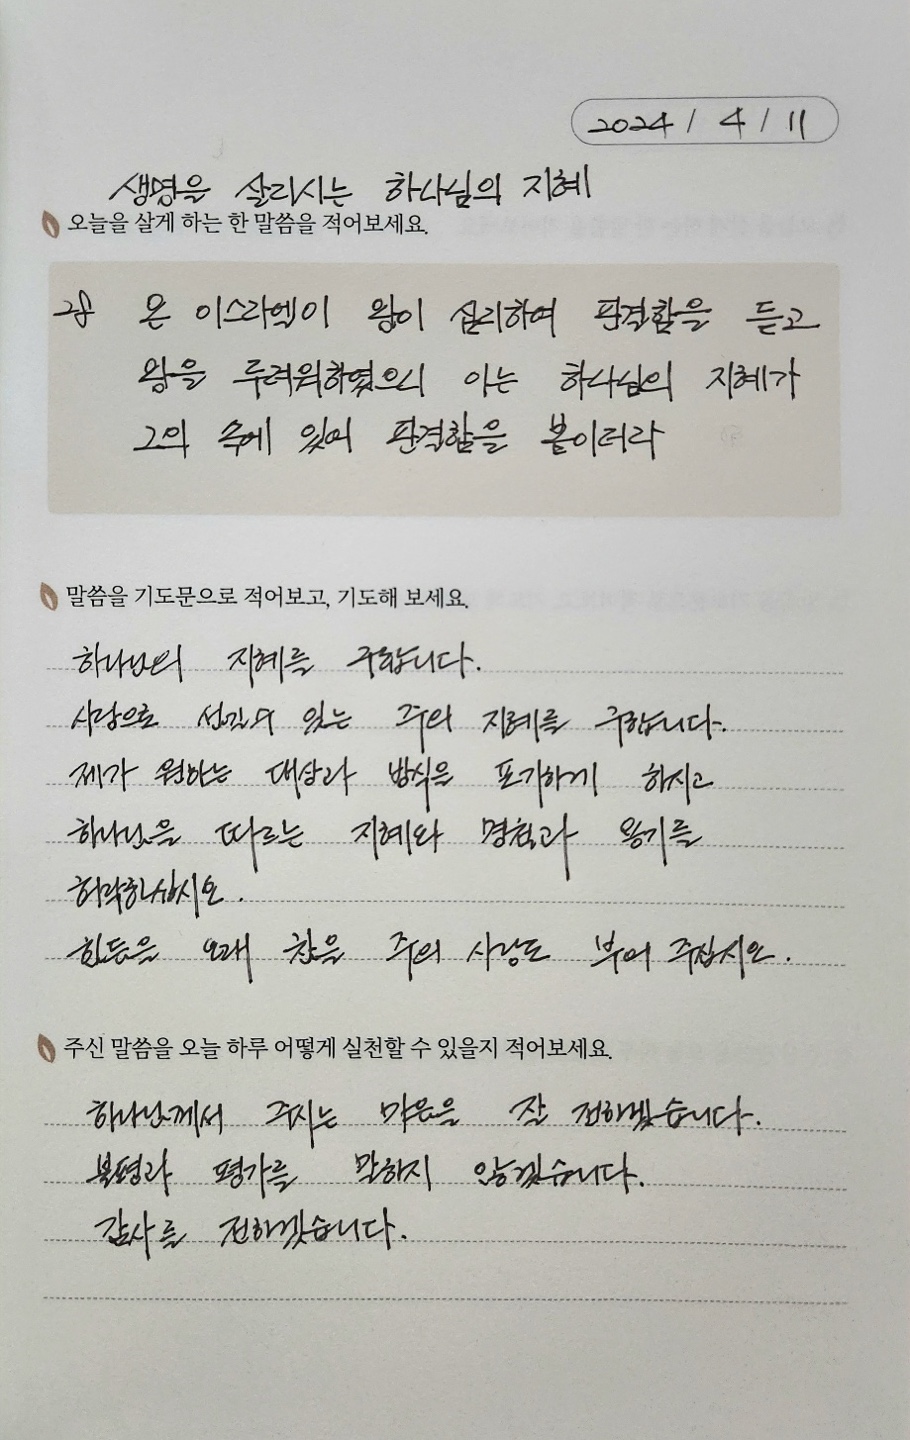 2024 / 4 / 11
생명을 살리시는 하나님의 지혜
오늘을 살게 하는 한 말씀을 적어보세요.
28 온 이스라엘이 왕이 심리하여 판결함을 듣고
왕을 두려워하였으니 이는 하나님의 지혜가
그의 속에 있어 판결함을 봄이더라
말씀을 기도문으로 적어보고, 기도해 보세요.
하나님의 지혜를 구합니다.
사랑으로 섬길 수 있는 주의 지혜를 구합니다.
제가 원하는 대상과 방식을 포기하게 하시고
하나님을 따르는 지혜와 명철과 용기를
허락하십시오.
힘듦을 오래 참을 주의 사랑도 부어 주십시오.
주신 말씀을 오늘 하루 어떻게 실천할 수 있을지 적어보세요.
하나님께서 주시는 마음을 잘 전하겠습니다.
불평과 평가를 말하지 않겠습니다.
감사를 전하겠습니다.